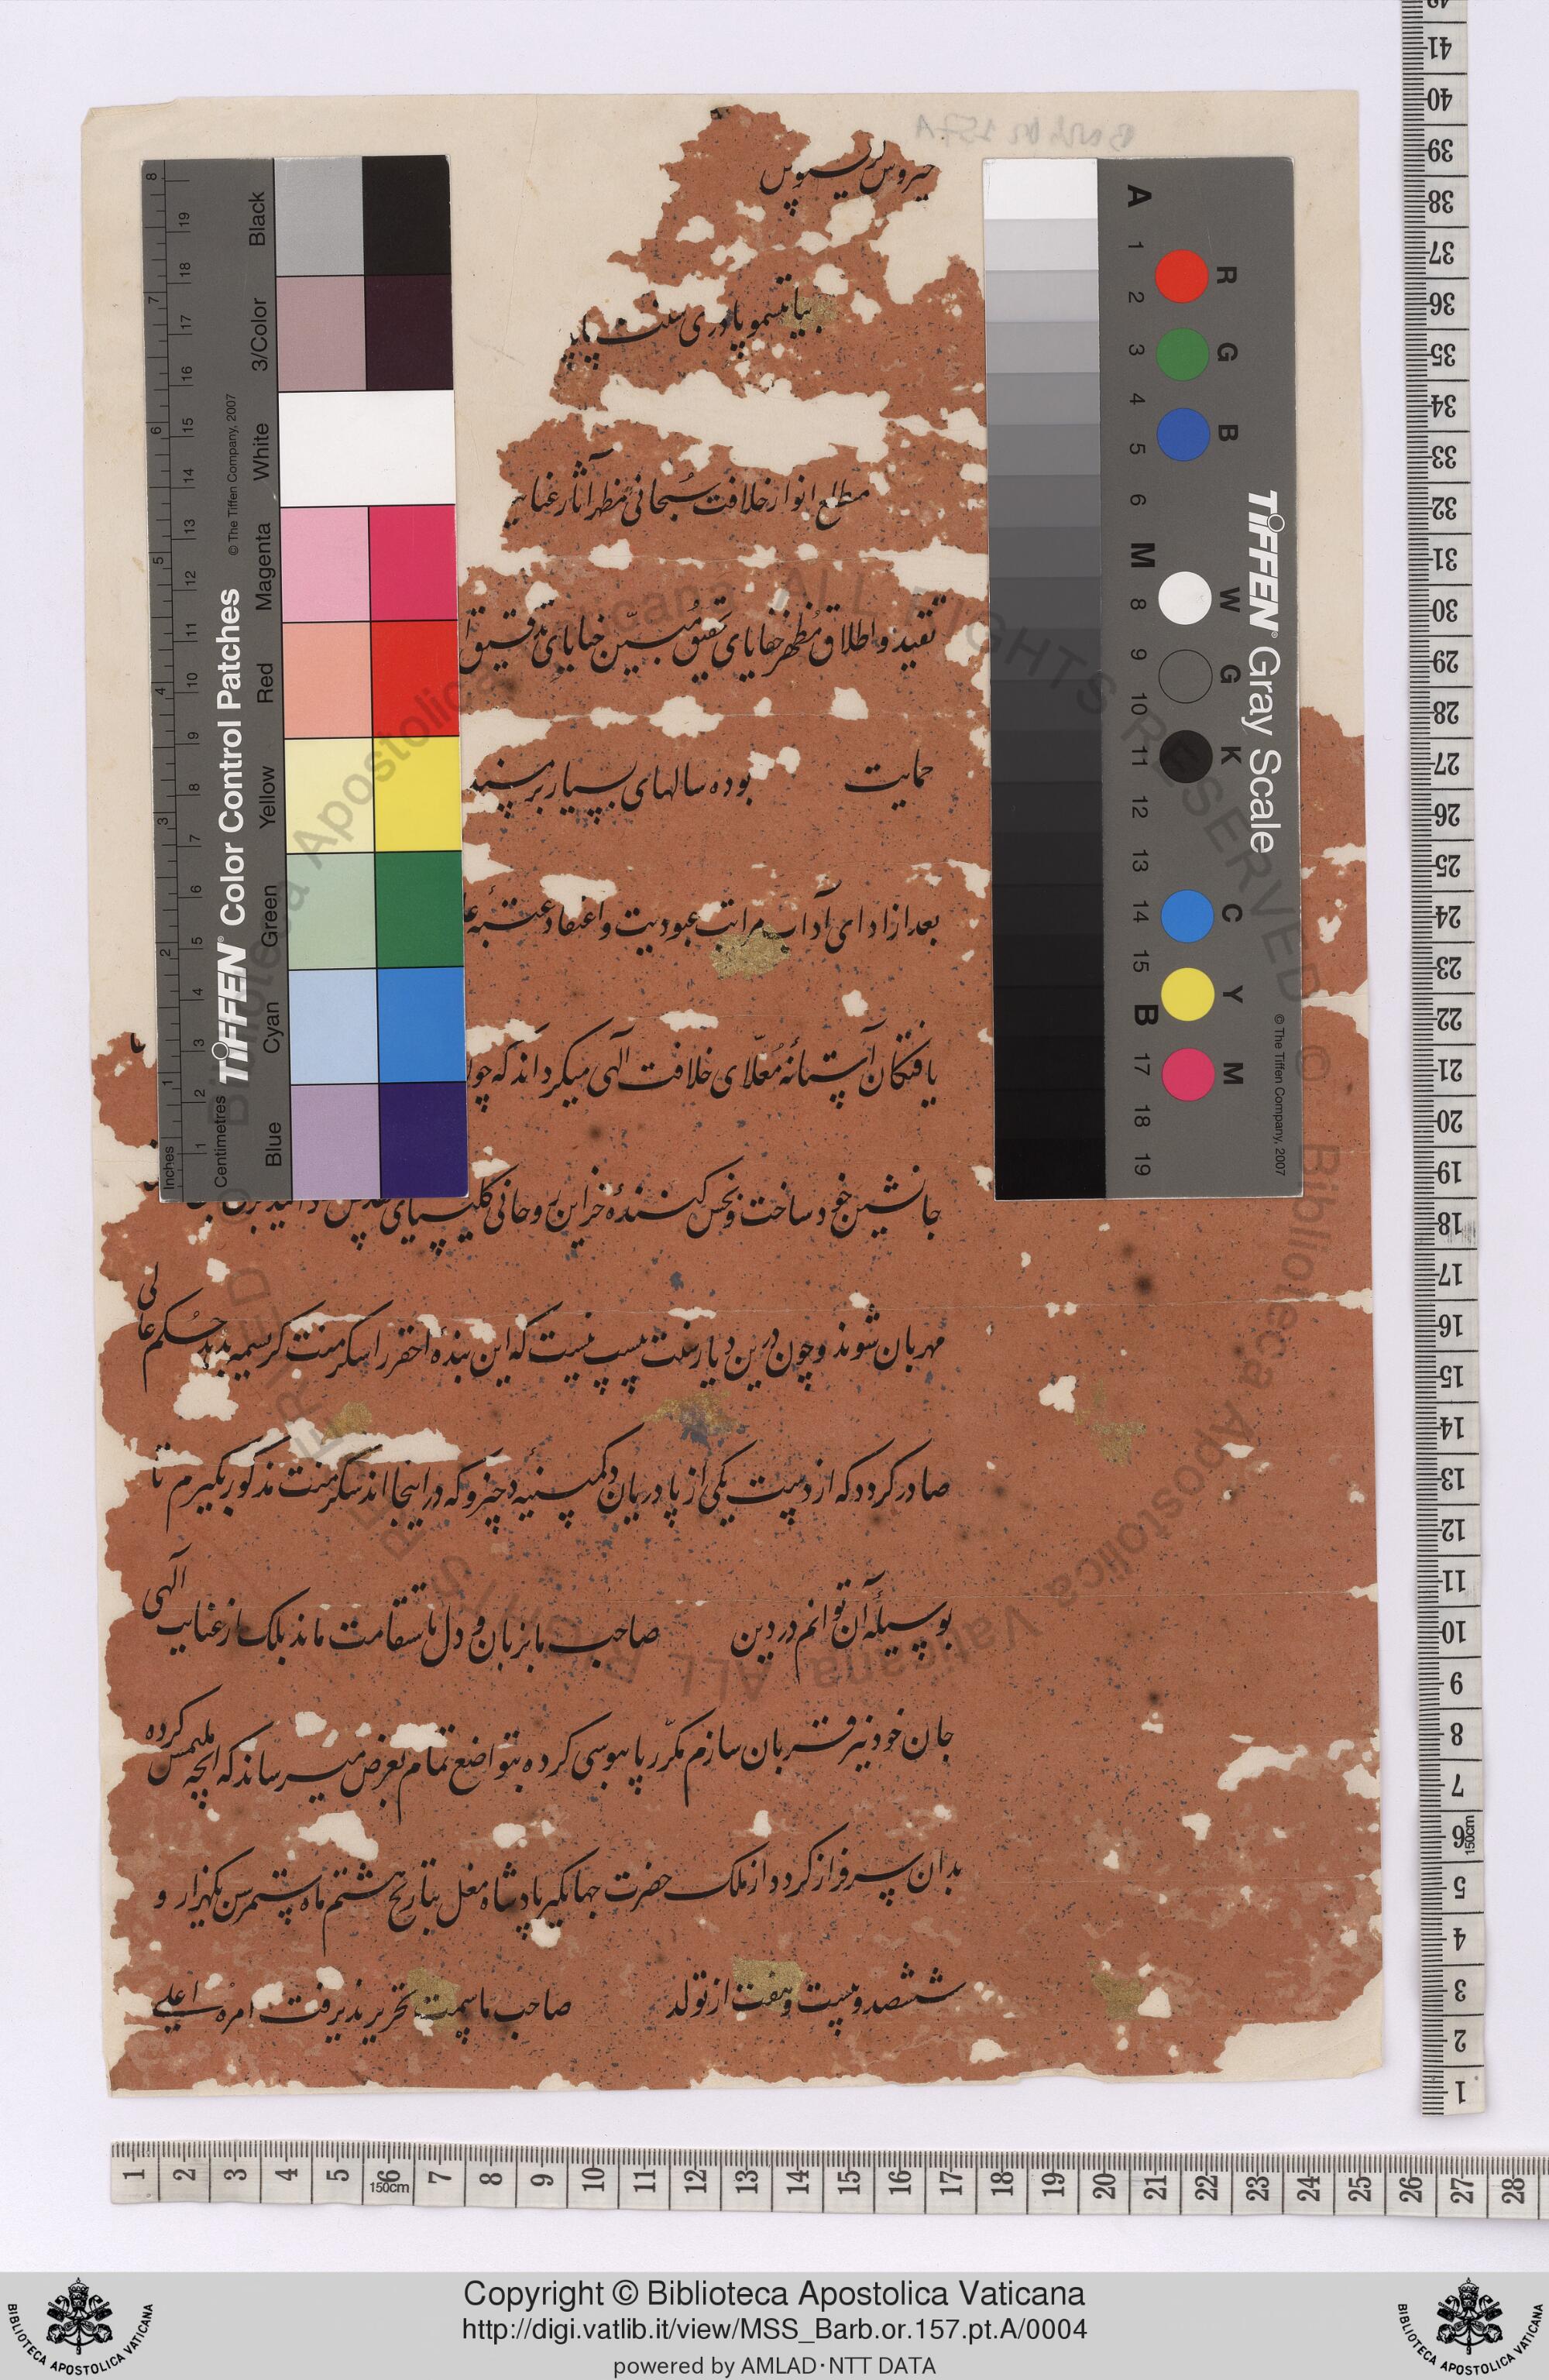 جیروس کریسوپس
بپاتیسمو پادری سنت پاپ
مطلع انوار خلافت سبحانی مظهر آثار عنایت
تقید و اطلاق مظهر خفایای تحقیق مبین خبایای تدقیق
حمایت بوده سالهای بسیار بر مسند
بعد از ادای آداب مراتب عبودیت و اعتقاد عتبه
یافتگان آستانهٔ معلّای خلافت الهی میگرداند که چون
جانشین خود ساخت و نخس کنندهٔ خزاین روحانی کلیسیای
مهربان شوند و چون درین دیار سنت پسپ نیست که این بندهٔ احقر را سکرمنت کریسمه بدهد حکم عالی
صادر کردد که از دست یکی از پادریان دکمپنیه دجیزو که در اینجا اند سکرمنت مذکور بگیرم تا
بوسیلهٔ آن توانم در دین صاحب ما بزبان و دل باستقامت ماند بلک از عنایت الهی
جان خود نیز قربان سازم مکرّر پابوسی کرده بتواضع تمام بعرض میرساند که آنچه ملتمس کرده
بدان سرفراز کردد از ملک حضرت جهانگیر پادشاه مغل بتاریخ هشتم ماه ستمبر سن یکهزار و
ششصد و بیست و هفت از تولد صاحب ما سمت تحریر پذیرفت امره اعلی
Black
3/Color
White
Magenta
Red
Yellow
Green
Cyan
Blue
TIFFEN® Color Control Patches
© The Tiffen Company, 2007
Inches
Centimetres
TIFFEN® Gray Scale
© The Tiffen Company, 2007
A 1 2 3 4 5 6 M 8 9 10 11 12 13 14 15 B 17 18 19
R G B W G K C Y M
© Biblioteca Apostolica Vaticana ALL RIGHTS RESERVED
Copyright © Biblioteca Apostolica Vaticana
http://digi.vatlib.it/view/MSS_Barb.or.157.pt.A/0004
powered by AMLAD·NTT DATA
BIBLIOTECA APOSTOLICA VATICANA
BIBLIOTECA APOSTOLICA VATICANA